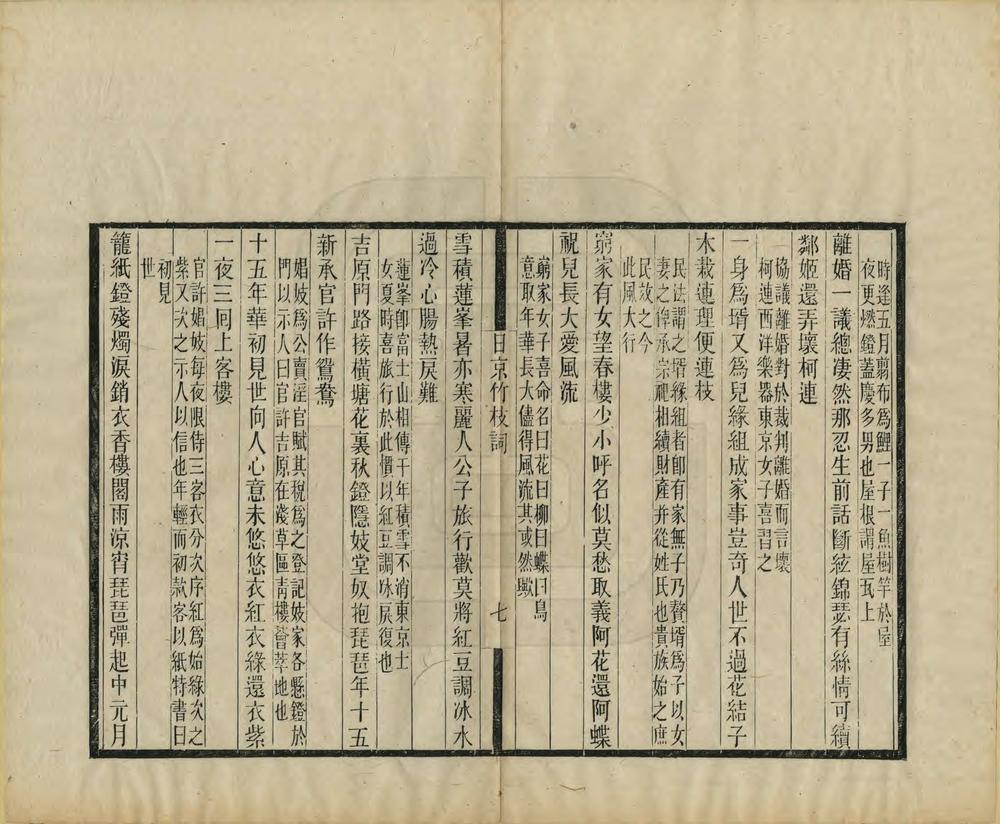 時逢五月翦布爲鯉一子一魚樹竿於屋
夜更燃鐙蓋慶多男也屋根謂屋瓦上
離婚一議總淒然那忍生前話斷絃錦瑟有絲情可續
鄰姬還弄壞柯連
協議離婚對於裁判離婚而言壞
柯連西洋樂器東京女子喜習之
一身爲壻又爲兒緣組成家事豈奇人世不過花結子
木栽連理便連枝
民法謂之壻緣組者卽有家無子乃贅壻爲子以女
妻之俾承宗祀相續財產幷從姓氏也貴族始之庶
民效之今
此風大行
窮家有女望春樓少小呼名似莫愁取義阿花還阿蝶
祝兒長大愛風流
窮家女子喜命名曰花曰柳曰蝶曰鳥
意取年華長大儘得風流其或然歟
日京竹枝詞
七
雪積蓮峯暑亦寒麗人公子旅行歡莫將紅豆調冰水
過冷心腸熱戾難
蓮峯卽富士山相傳千年積雪不消東京士
女夏時喜旅行於此價以紅豆調冰戾復也
吉原門路接橫塘花裏秋鐙隱妓堂奴抱琵琶年十五
新承官許作鴛鴦
娼妓爲公賣淫官賦其稅爲之登記妓家各懸鐙於
門以示人曰官許吉原在淺草區靑樓薈萃地也
十五年華初見世向人心意未悠悠衣紅衣綠還衣紫
一夜三回上客樓
官許娼妓每夜限侍三客衣分次序紅爲始綠次之
紫又次之示人以信也年輕而初款客以紙特書曰
初見
世
籠紙鐙殘燭淚銷衣香樓閣雨凉宵琵琶彈起中元月